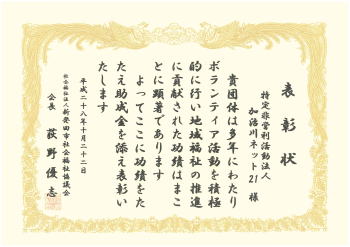 表彰状
特定非営利活動法人
加治川ネット21 様
貴団体は多年にわたり
ボランティア活動を積極
的に行い地域福祉の推進
に貢献された功績はまこ
とに顕著であります
よってここに功績をた
たえ助成金を添え表彰い
たします
平成二十八年十月二十二日
社会福祉法人新発田市社会福祉協議会
会長 荻野優志